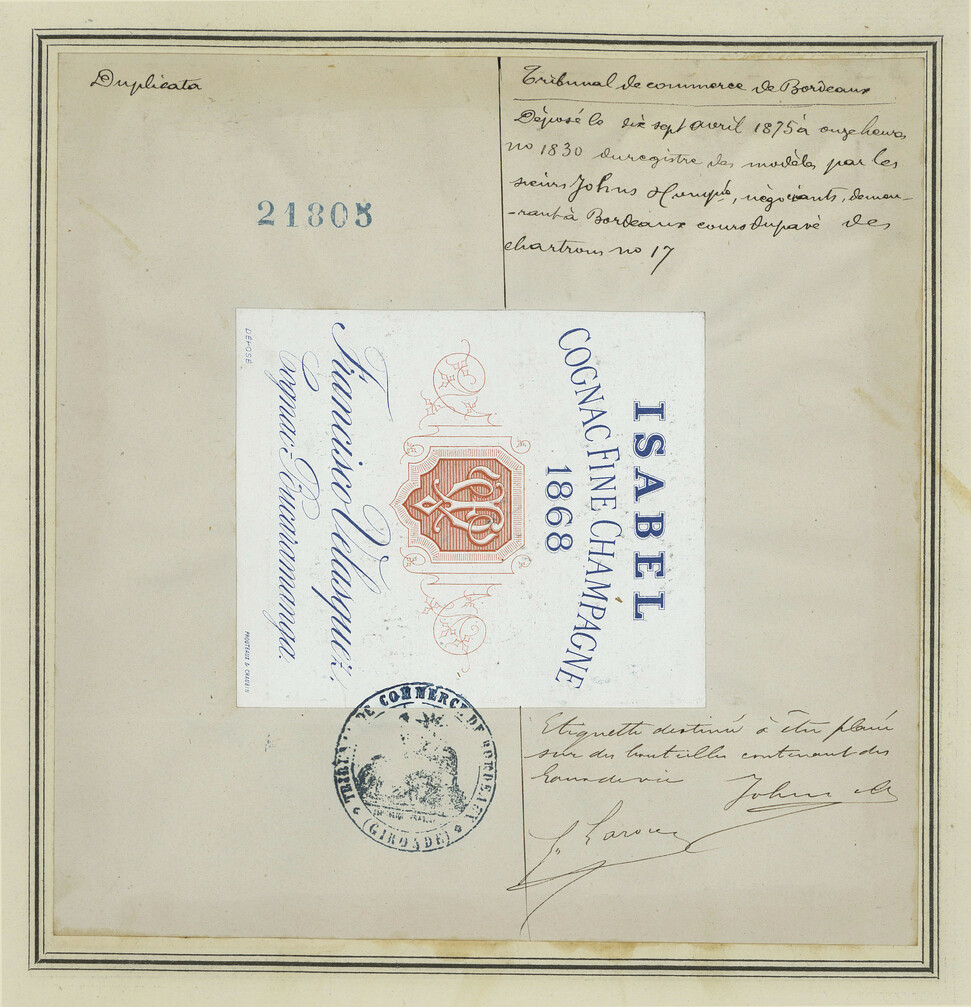 Duplicata
21805
Tribunal de commerce de Bordeaux
Déposé le dix sept avril 1875 à onze heures
no 1830 du registre des modèles par les
sieurs Johns & Compie, négociants, demeu-
-rant à Bordeaux cours du pavé des
chartrons no 17
ISABEL
COGNAC FINE CHAMPAGNE
1868
Francisco Velasquez,
Cognac-Bucaramanga.
DÉPOSÉ
TRIBUNAL DE COMMERCE DE BORDEAUX
(GIRONDE)
Etiquette destinée à être placée
sur des bouteilles contenant des
Eaux de vie
Johns